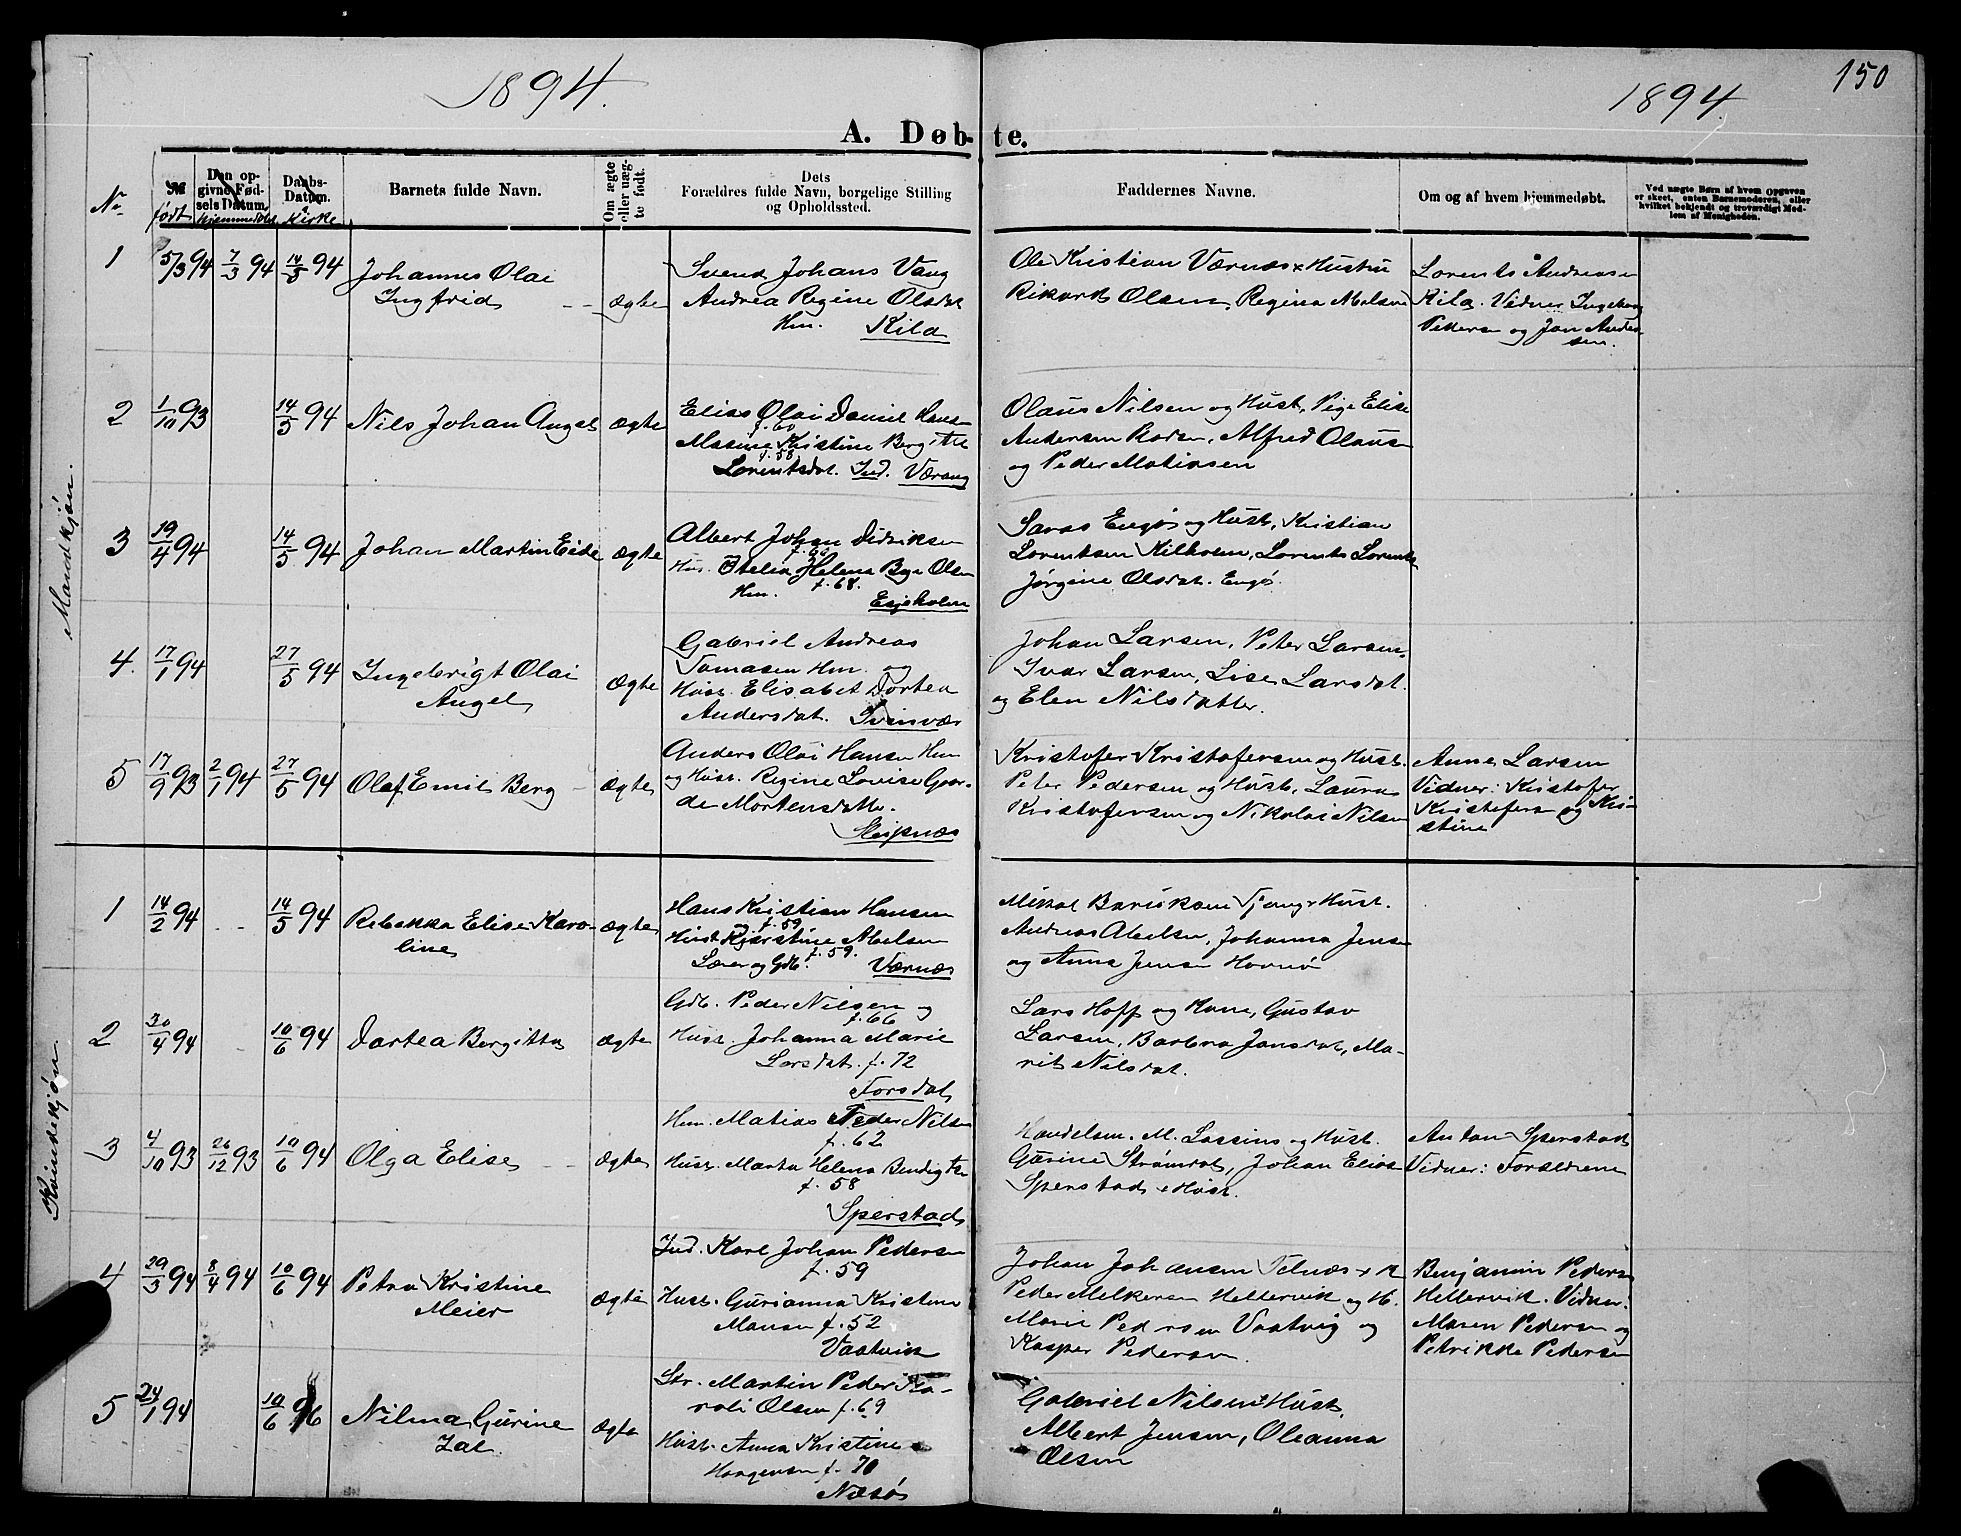 1894.
1894.
150
A. Døbte.
No
Mandkjøn.
Kvindekjøn.
født
Den opgivne Fødsels Datum.
hjemmedøbt
Daabs-Datum.
Kirke
Barnets fulde Navn.
Om ægte eller uægte født.
Dets
Forældres fulde Navn, borgelige Stilling
og Opholdssted.
Faddernes Navne.
Om og af hvem hjemmedøbt.
Ved uægte Børn af hvem Opgaven
er skeet, enten Barnemoderen, eller
hvilket bekjendt og troværdigt Medlem af Menigheden.
1 5/3 94 7/3 94 14/5 94
Johannes Olai
Ingfrid
ægte
Svend Johans Vang
Andrea Regine Olsdat
Hm. Kila
Ole Kristian Værnæs + Hustru
Rikard Olsen, Regina
Lorents Andreasen
Kila. Vidner Ingeborg
Pedersen og Jon Andersen.
2 1/10 93 14/5 94
Nils Johan Angel
ægte
Elias Olai Daniel Hansen
f. 60
Masine Kristine Bergitte
f. 58
Lorentsdat. Ind. Værang
Olaus Nilsen og Hust, Pige Elise
Andersen, Alfred Olausen
og Peder Matiasen
3 19/4 94 14/5 94
Johan Martin Eide
ægte
Albert Johan Didriksen
Hus. Otelia Helena Bye Olsen
Hm. f. 68.
Engø og Hust, Kristian
Lorentsen Kilholm, Lorents Lorents
Jørgine Olsdat. Engø.
4. 17/1 94 27/5 94
Ingebrigt Olai
Angel
ægte
Gabriel Andreas
Tomasen Hm. og
Hust. Elisabet Dortea
Andersdat. Svinvær
Johan Larsen, Peter Larsen,
Ivar Larsen, Lise Larsdat.
og Elen Nilsdatter.
5 17/9 93 2/1 94 27/5 94
Olaf Emil Berg
ægte
Anders Olai Hansen Hm
og Hust. Regine Lovise
Mortensdatter.
Skipnæs
Kristofer Kristofersen og Hust.
Peter Pedersen og Hust, Laura
Kristofersen og Nikolai Nilsen
Anne Larsen
Vidner: Kristofer
Kristofersen og Kristine
1 14/2 94 14/5 94
Rebekka Elise Karoline
ægte
Hans Kristian Hansen
og f. 59
Hust Kjerstine Abelsen
f. 59.
Lærer og Gdb. Værnæs
Mikal Bariksen Tjong + Hust.
Andreas Abelsen, Johanna Jensen
og Anna Jensen Havnø
2 30/4 94 10/6 94
Dortea Bergitta
ægte
Gdb. Peder Nilsen og
f. 66
Hust. Johanna Marie
Larsdat. f. 72
Forsdal
Lars Hoff og Kone, Gustav
Larsen, Barbra Jonsdat, Marit Nilsdat.
3 4/10 93 26/12 93 10/6 94
Olga Elise
ægte
Hm. Matias Peder Nilsen
f. 62
Hust. Marta Helena Bendigtsen
f. 58
Sperstad
Handelsm. M. Lossius og Hust.
Gurine Strømdal, Johan Elias
Sperstad + Hust.
Anton Sperstad
Vidner: Forældrene
4 29/3 94 8/4 94 10/6 94
Petra Kristine
Meier
ægte
Ind. Karl Johan Pedersen
f. 59
Hust. Gurianna Kristina
Monsen f. 52
Vaatvik
Johan Johansen Telnæs + H
Peder Melkersen Hellervik og H.
Marie Pedersen Vaatvig og
Kasper Pedersen.
Benjamin Pedersen
Hellervik. Vidner:
Maren Pedersen og
Petrikke Pedersen
5 24/1 94 10/6 96
Nilma Gurine
ægte
Str. Martin Peder
Olsen f. 69
Hust. Anna Kristine
Haagensen f. 70
Næsø
Gabriel Nilsen + Hust,
Albert Jensen, Oleanna
Olsen